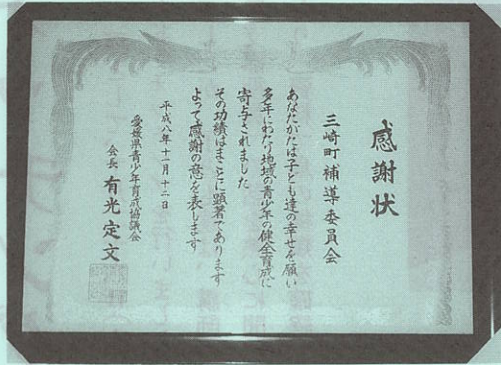 感謝状
三崎町補導委員会
あなたがたは子ども達の幸せを願い
多年にわたり地域の青少年の健全育成に
寄与されました
その功績はまことに顕著であります
よって感謝の意を表します
平成八年十一月十二日
愛媛県青少年育成協議会
会長 有光定文